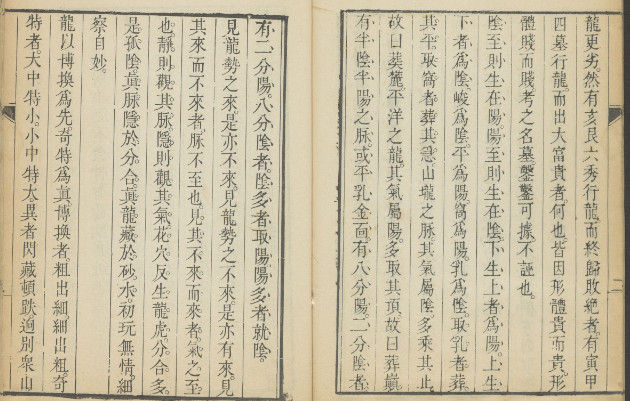 龍更劣然有亥艮六秀行龍而終歸敗絶者有寅甲
四墓行龍而出大富貴者何也皆因形體貴而貴形
體賤而賤考之名墓鑿鑿可據不誣也
陰至則生在陽陽至則生在陰下生上者爲陽上生
下者爲陰峻爲陰平爲陽窩爲陽乳爲陰取乳者葬
其平取窩者葬其急山壠之脉其氣屬陰多乘其止
故曰葬麓平洋之龍其氣屬陽多取其頂故曰葬巓
有半陰半陽之脉或平乳金靣有八分陽二分陰者
有二分陽八分陰者陰多者取陽陽多者就陰
見龍勢之來是亦不來見龍勢之不來是亦有來見
其來而不來者脉不至也見其不來而來者氣之至
也靜則觀其脉隱則觀其氣花穴反生龍虎分合多
是孤陰眞脉隱於分合眞龍藏於砂水初玩無情細
察自妙
龍以博換爲先奇特爲眞博換者粗出細細出粗奇
特者大中特小小中特太異者閃藏頓跌逈別衆山